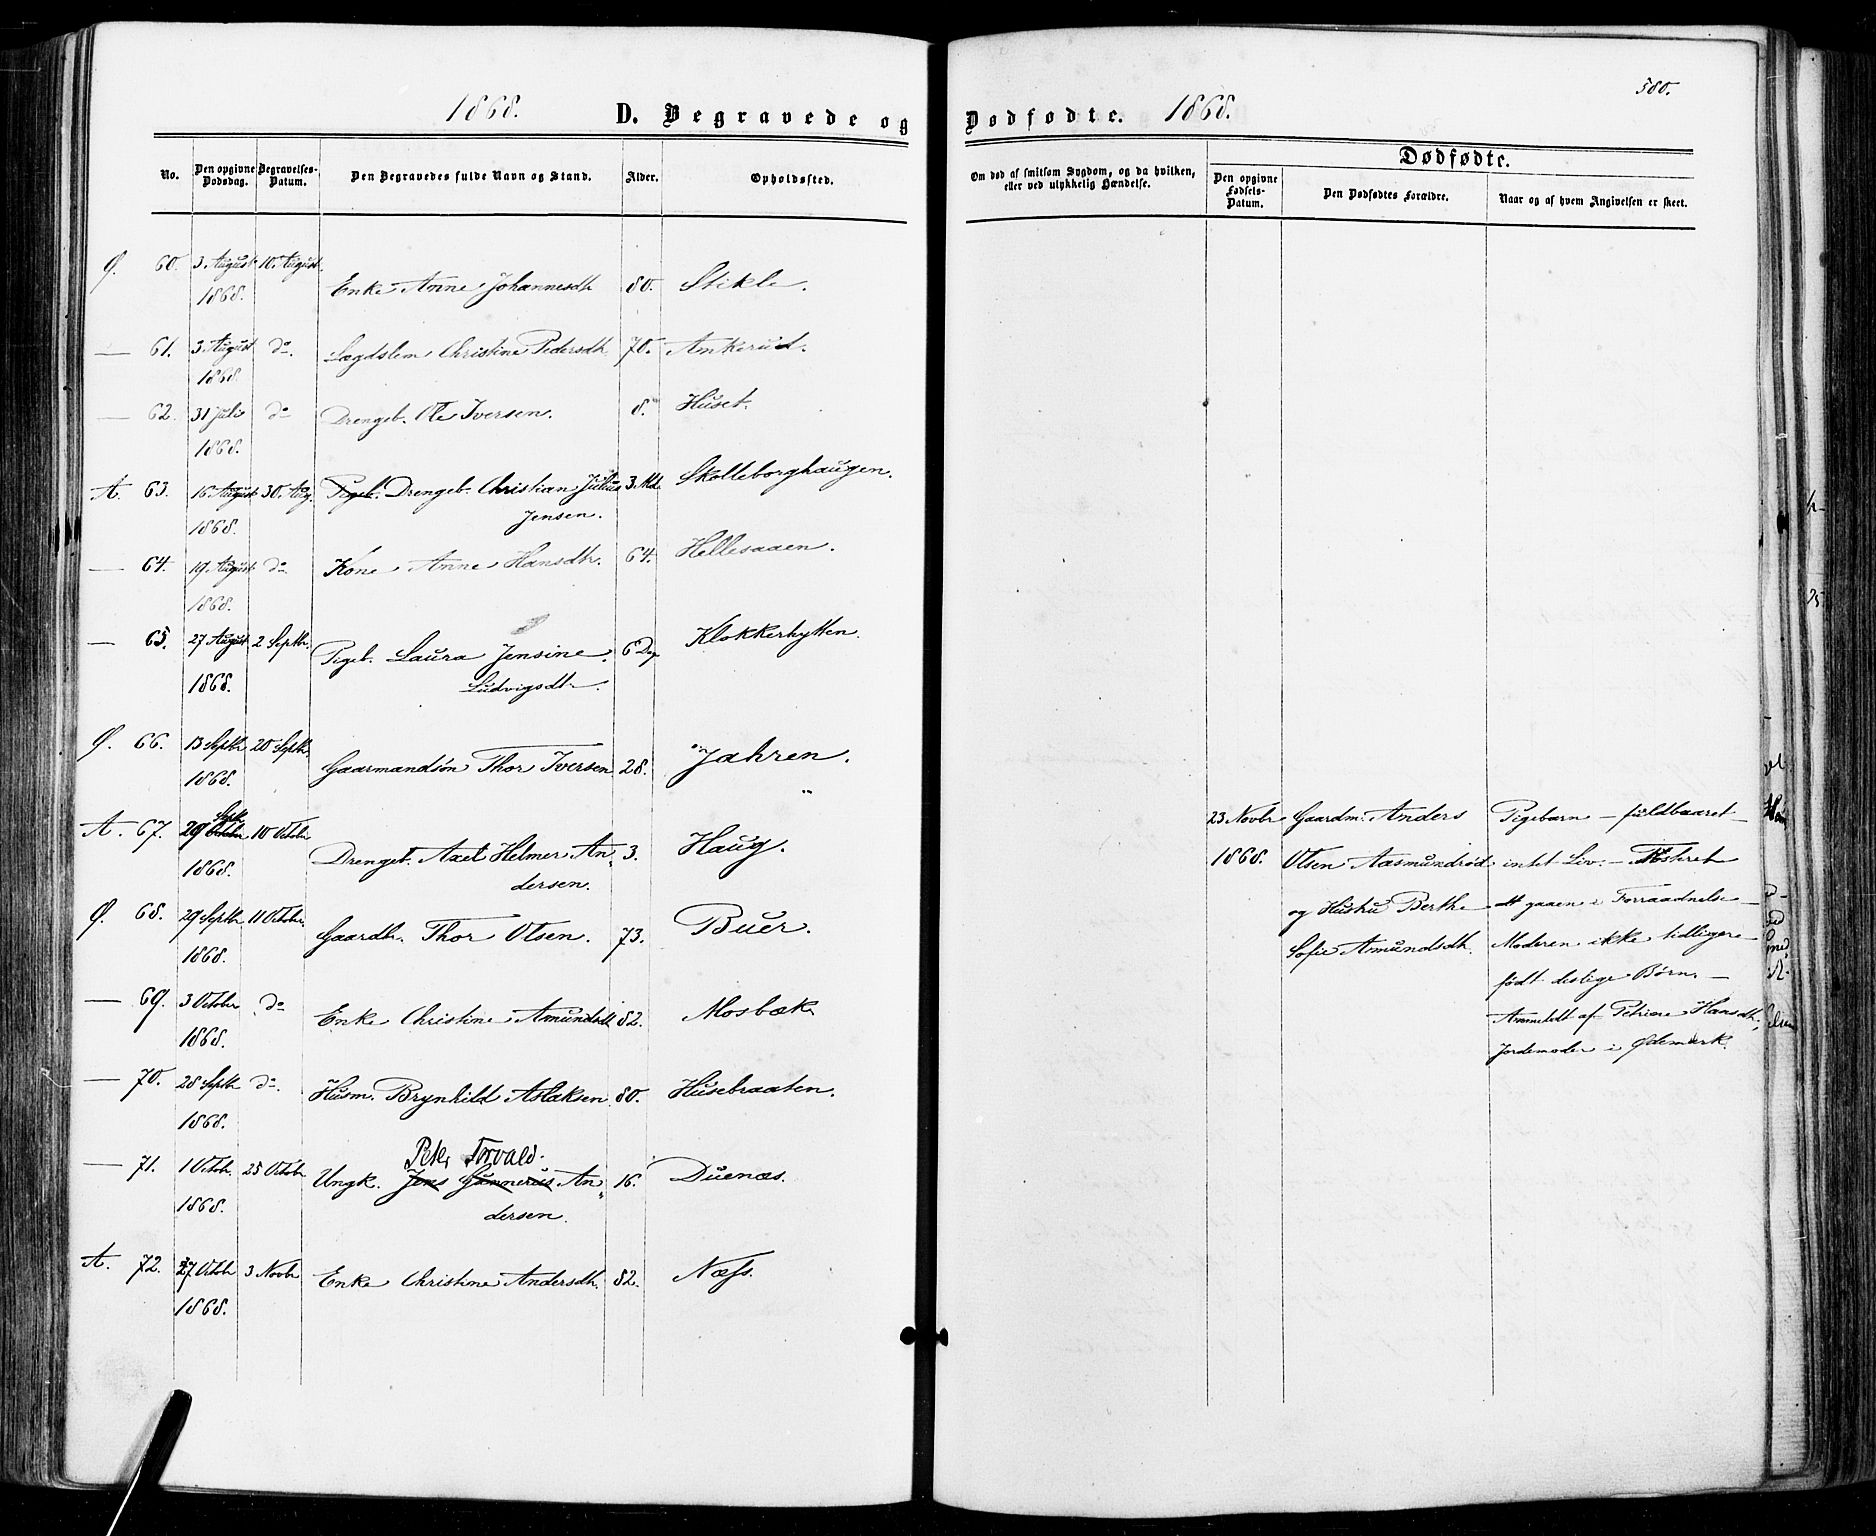 1868. D. Begravede og
No. Den opgivne Dødsdag. Begravelses-Datum. Den Begravedes fulde Navn og Stand. Alder. Opholdssted.
Ø. 60. 3 August 10. August
1868. Enke Anne Johannesdtr 80. Stikle.
— 61. 3 August do. Lægdslem Christine Pedersdtr. 70. Ankerud.
1868.
— 62. 31 Juli do Drengeb. Ole Iversen. 8. Huset.
1868.
A. 63. 16 August 30. Aug. Pigeb. Drengeb. Christian Julius 3. Md. Skolleborghaugen.
1868. Jensen.
— 64. 19 August do. Kone Anne Hansdtr. 64. Hellesaaen.
1868.
— 65. 27 August 2 Septbr. Pigeb. Laura Jensine 6 Dag Klokkerhytten.
1868. Ludvigsdtr.
Ø. 66. 13 Septbr 20 Septbr.
1868. Gaarmandsøn Thor Iversen 28. Jahren.
Septr.
A. 67. 29 Octobr 10 Octobr
1868. Drengeb. Axel Helmer An- 3. Haug.
dersen.
Ø. 68. 29 Septbr 11 Octobr. Gaardbr. Thor Olsen. 73. Buer.
1868.
— 69. 3 Octobr do Enke Christine Amundsdtr 82. Mosbæk
1868.
— 70. 28 Septbr do. Husm. Brynhild Aslaksen 80. Husebraaten.
1868.
Peter Torvald.
— 71. 1 Octob. 25 Octobr Ungk. Jens Gunnerius An- 16. Duenæs.
1868. dersen.
A. 72. 27 Octobr 3 Novbr Enke Christine Andersdtr. 82. Næss.
1868.
Dødfødte. 1868. 580.
Om død af smitsom Sygdom, og da hvilken,
eller ved ulykkelig Hændelse.
Dødfødte.
Den opgivne Fødsels-Datum. Den Dødfødtes Forældre. Naar og af hvem Angivelsen er skeet.
23 Novbr Gaardm. Anders Pigebarn – fuldbaaret –
1868. Olsen Aasmundrød intet Liv. – Fosteret
og Hustru Berthe gaaen i Forraadnelse –
Sofie Amundsdtr. Moderen ikke tidligere
født deslige Børn. –
Anmeldt af Petrine Hansdtr,
Jordemoder i Ødemark.